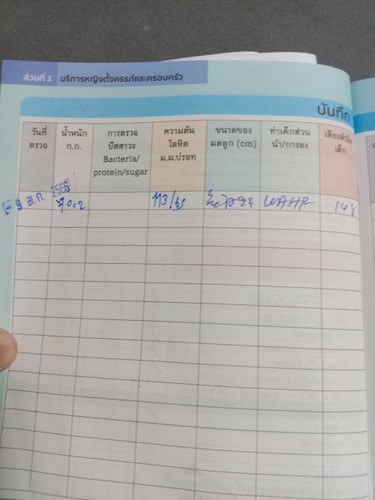 ส่วนที่ 1 บริการหญิงตั้งครรภ์และครอบครัว
บันทึก
วันที่ตรวจ
น้ำหนัก ก.ก.
การตรวจปัสสาวะ Bacteria/ protein/sugar
ความดันโลหิต ม.ม.ปรอท
ขนาดของมดลูก (cm)
ท่าเด็กส่วนนำ/การลง
เด็ก
ส.ค. 2568
113/65
148